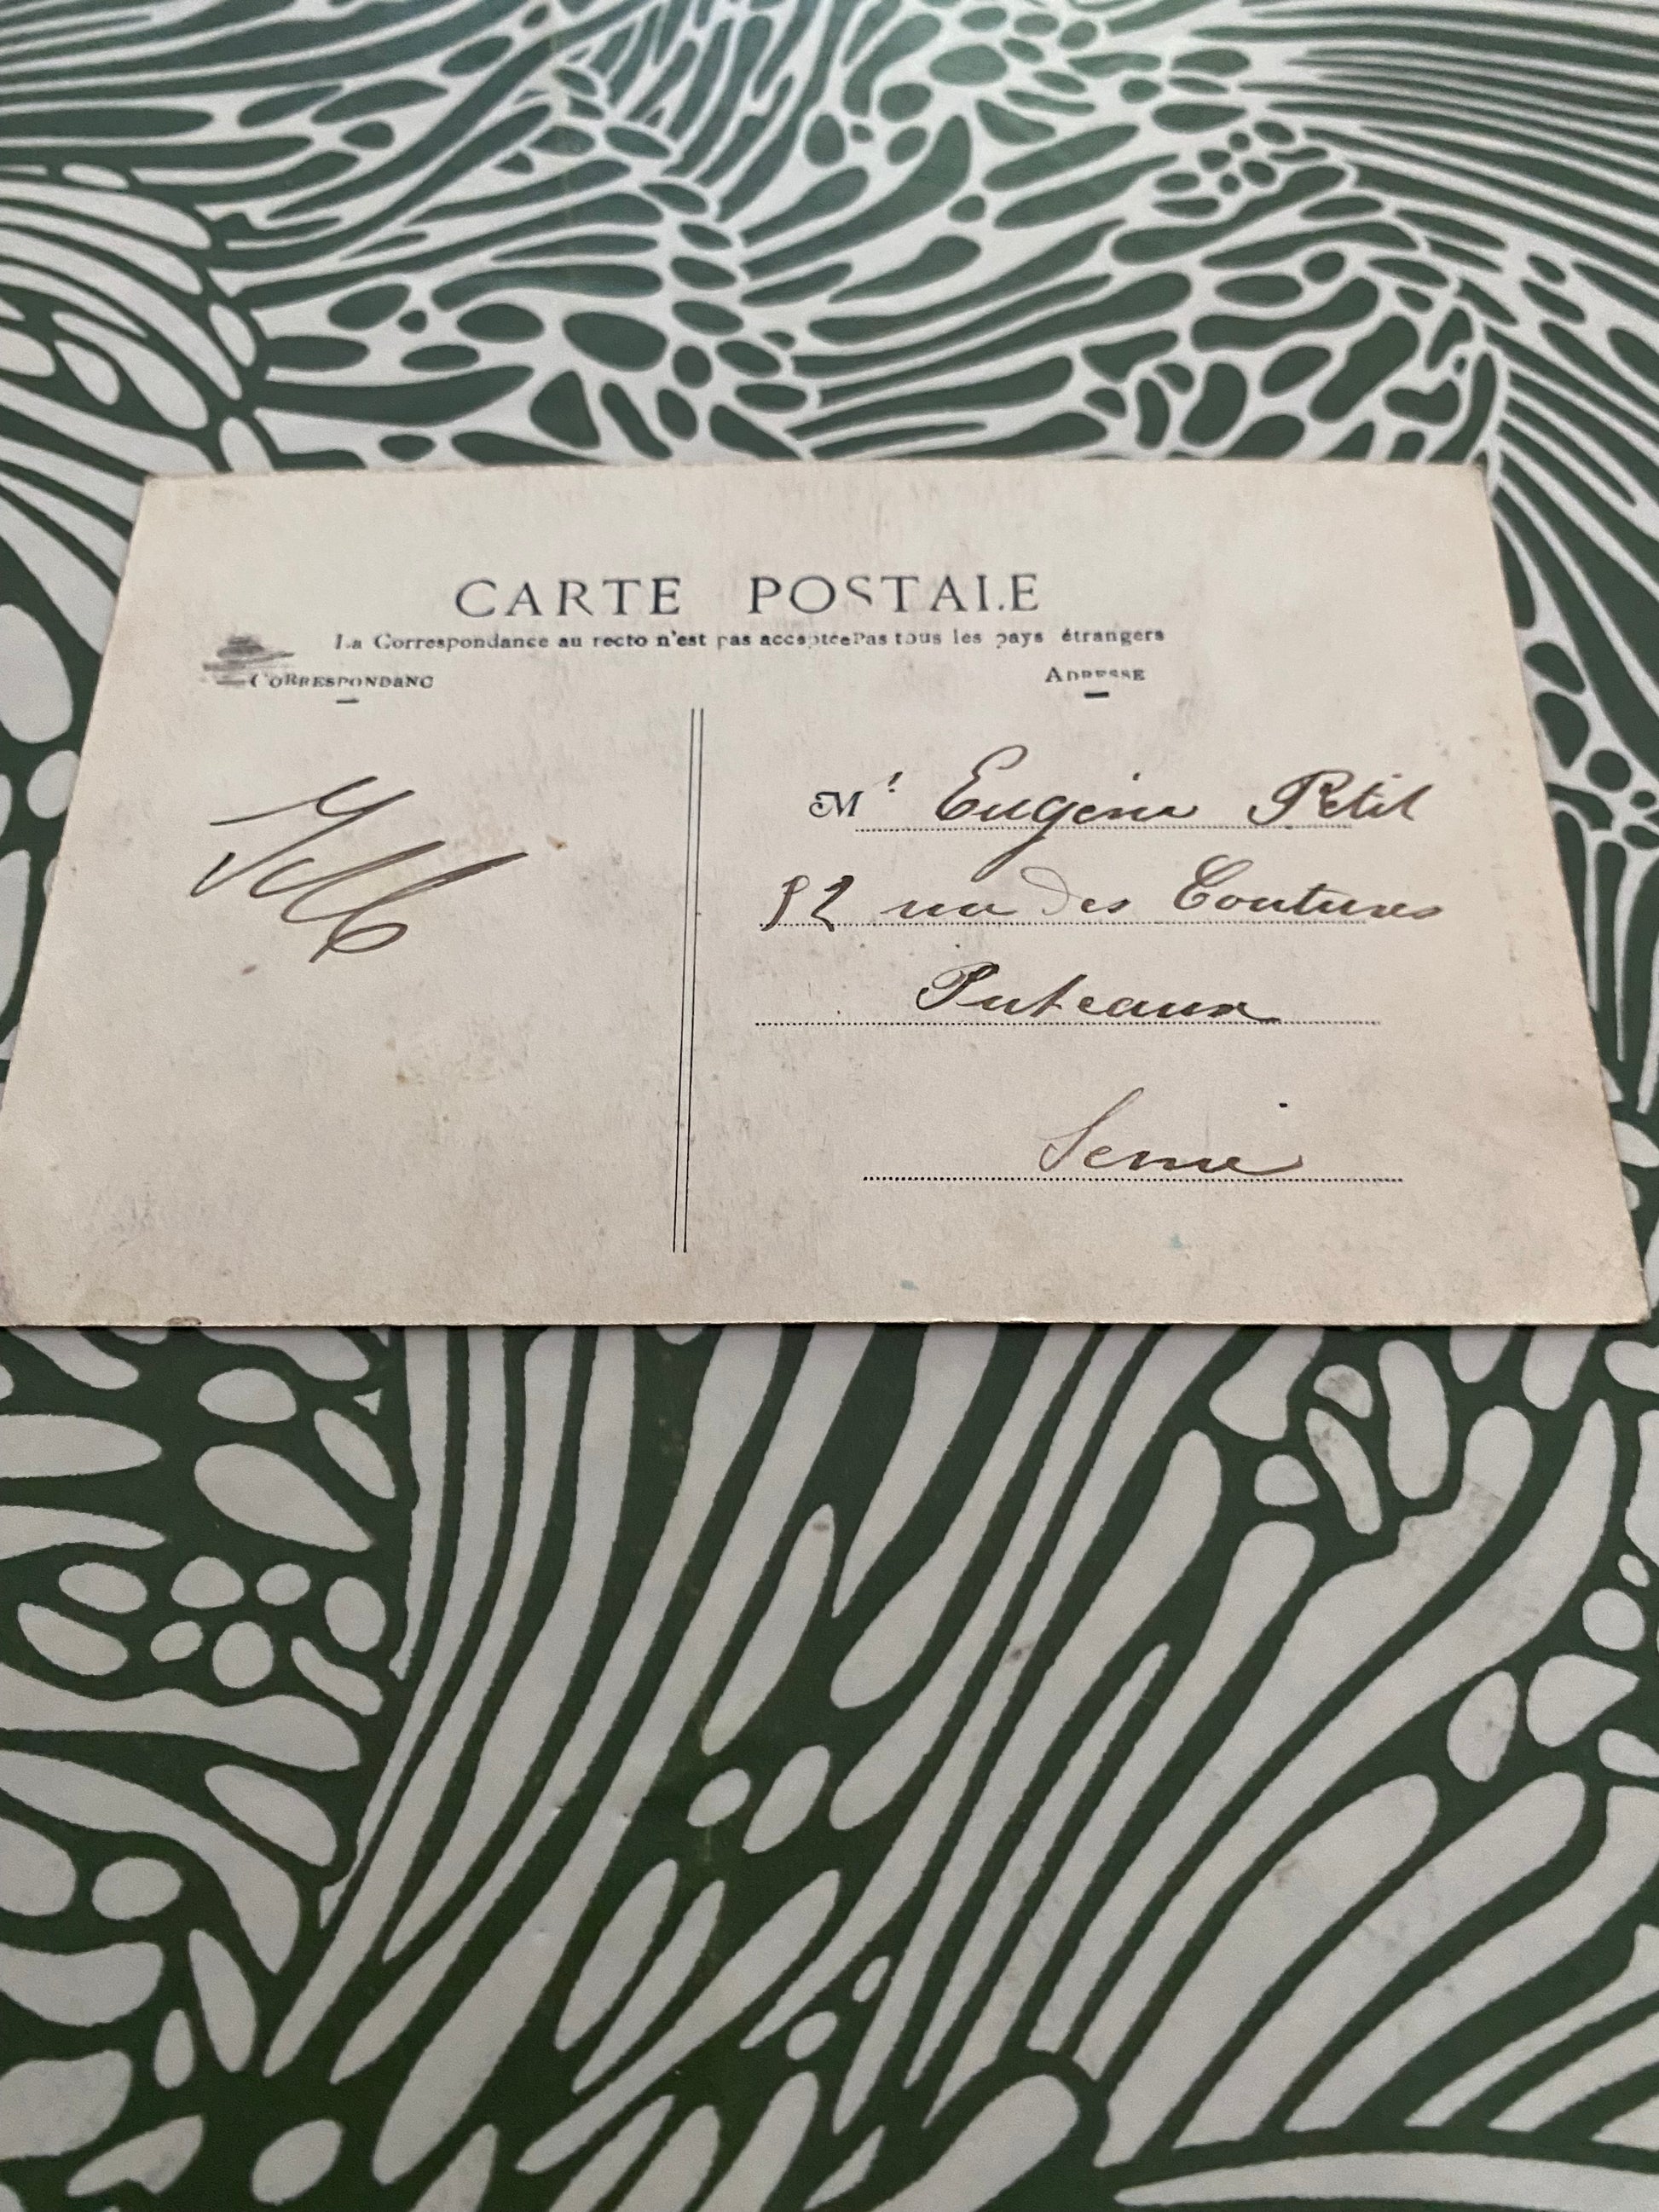 CARTE POSTALE
La Correspondance au recto n'est pas acceptée Pas tous les pays étrangers
CORRESPONDANC
ADRESSE
M. Eugène Petit
52 rue des Coutures
Puteaux
Seine